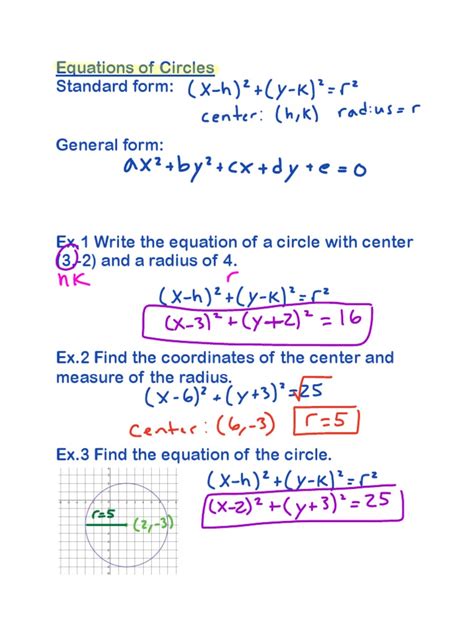 Equations of Circles
Standard form: (x-h)²+(y-k)²=r²
center: (h,k) radius=r
General form:
ax²+by²+cx+dy+e=0
Ex.1 Write the equation of a circle with center
(3,-2) and a radius of 4.
h k r
(x-h)²+(y-k)²=r²
(x-3)²+(y+2)²=16
Ex.2 Find the coordinates of the center and
measure of the radius.
(x-6)²+(y+3)²=√25
center: (6,-3) r=5
Ex.3 Find the equation of the circle.
(x-h)²+(y-k)²=r²
(x-2)²+(y+3)²=25
r=5
(2,-3)